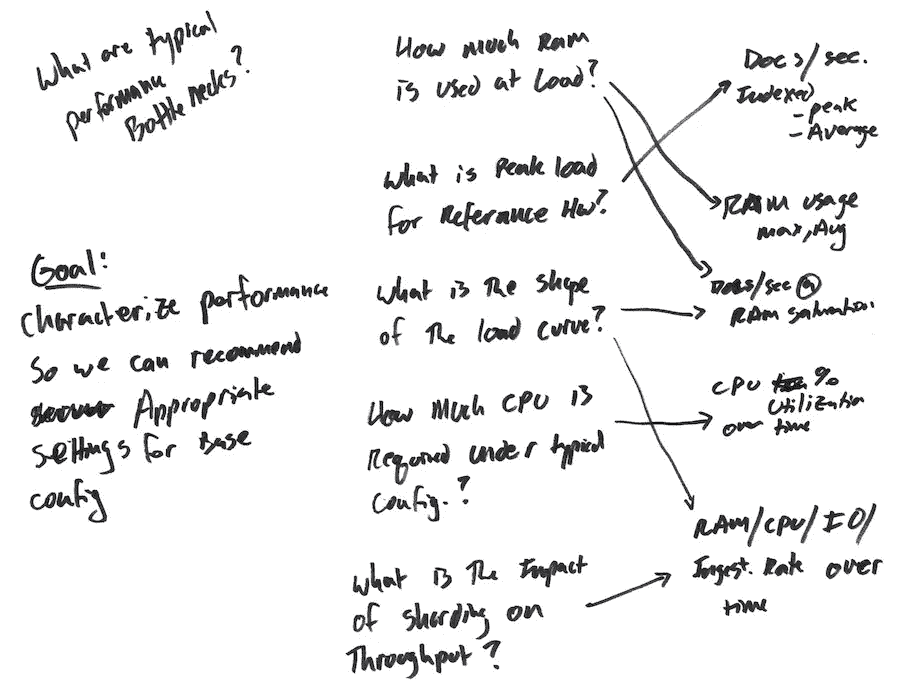 What are typical
performance
Bottlenecks?
Goal:
Characterize performance
So we can recommend
Appropriate
Settings for Base
config
How much RAM
is used at Load?
What is Peak load
for Reference HW?
What is The shape
of The load curve?
How Much CPU is
Required under typical
Config.?
What is The Impact
of sharding on
Throughput?
Docs/sec.
Indexed
- peak
- Average
RAM usage
max, Avg
Docs/sec @
RAM saturation
CPU %
Utilization
over time
RAM/CPU/IO/
Ingest. Rate over
time